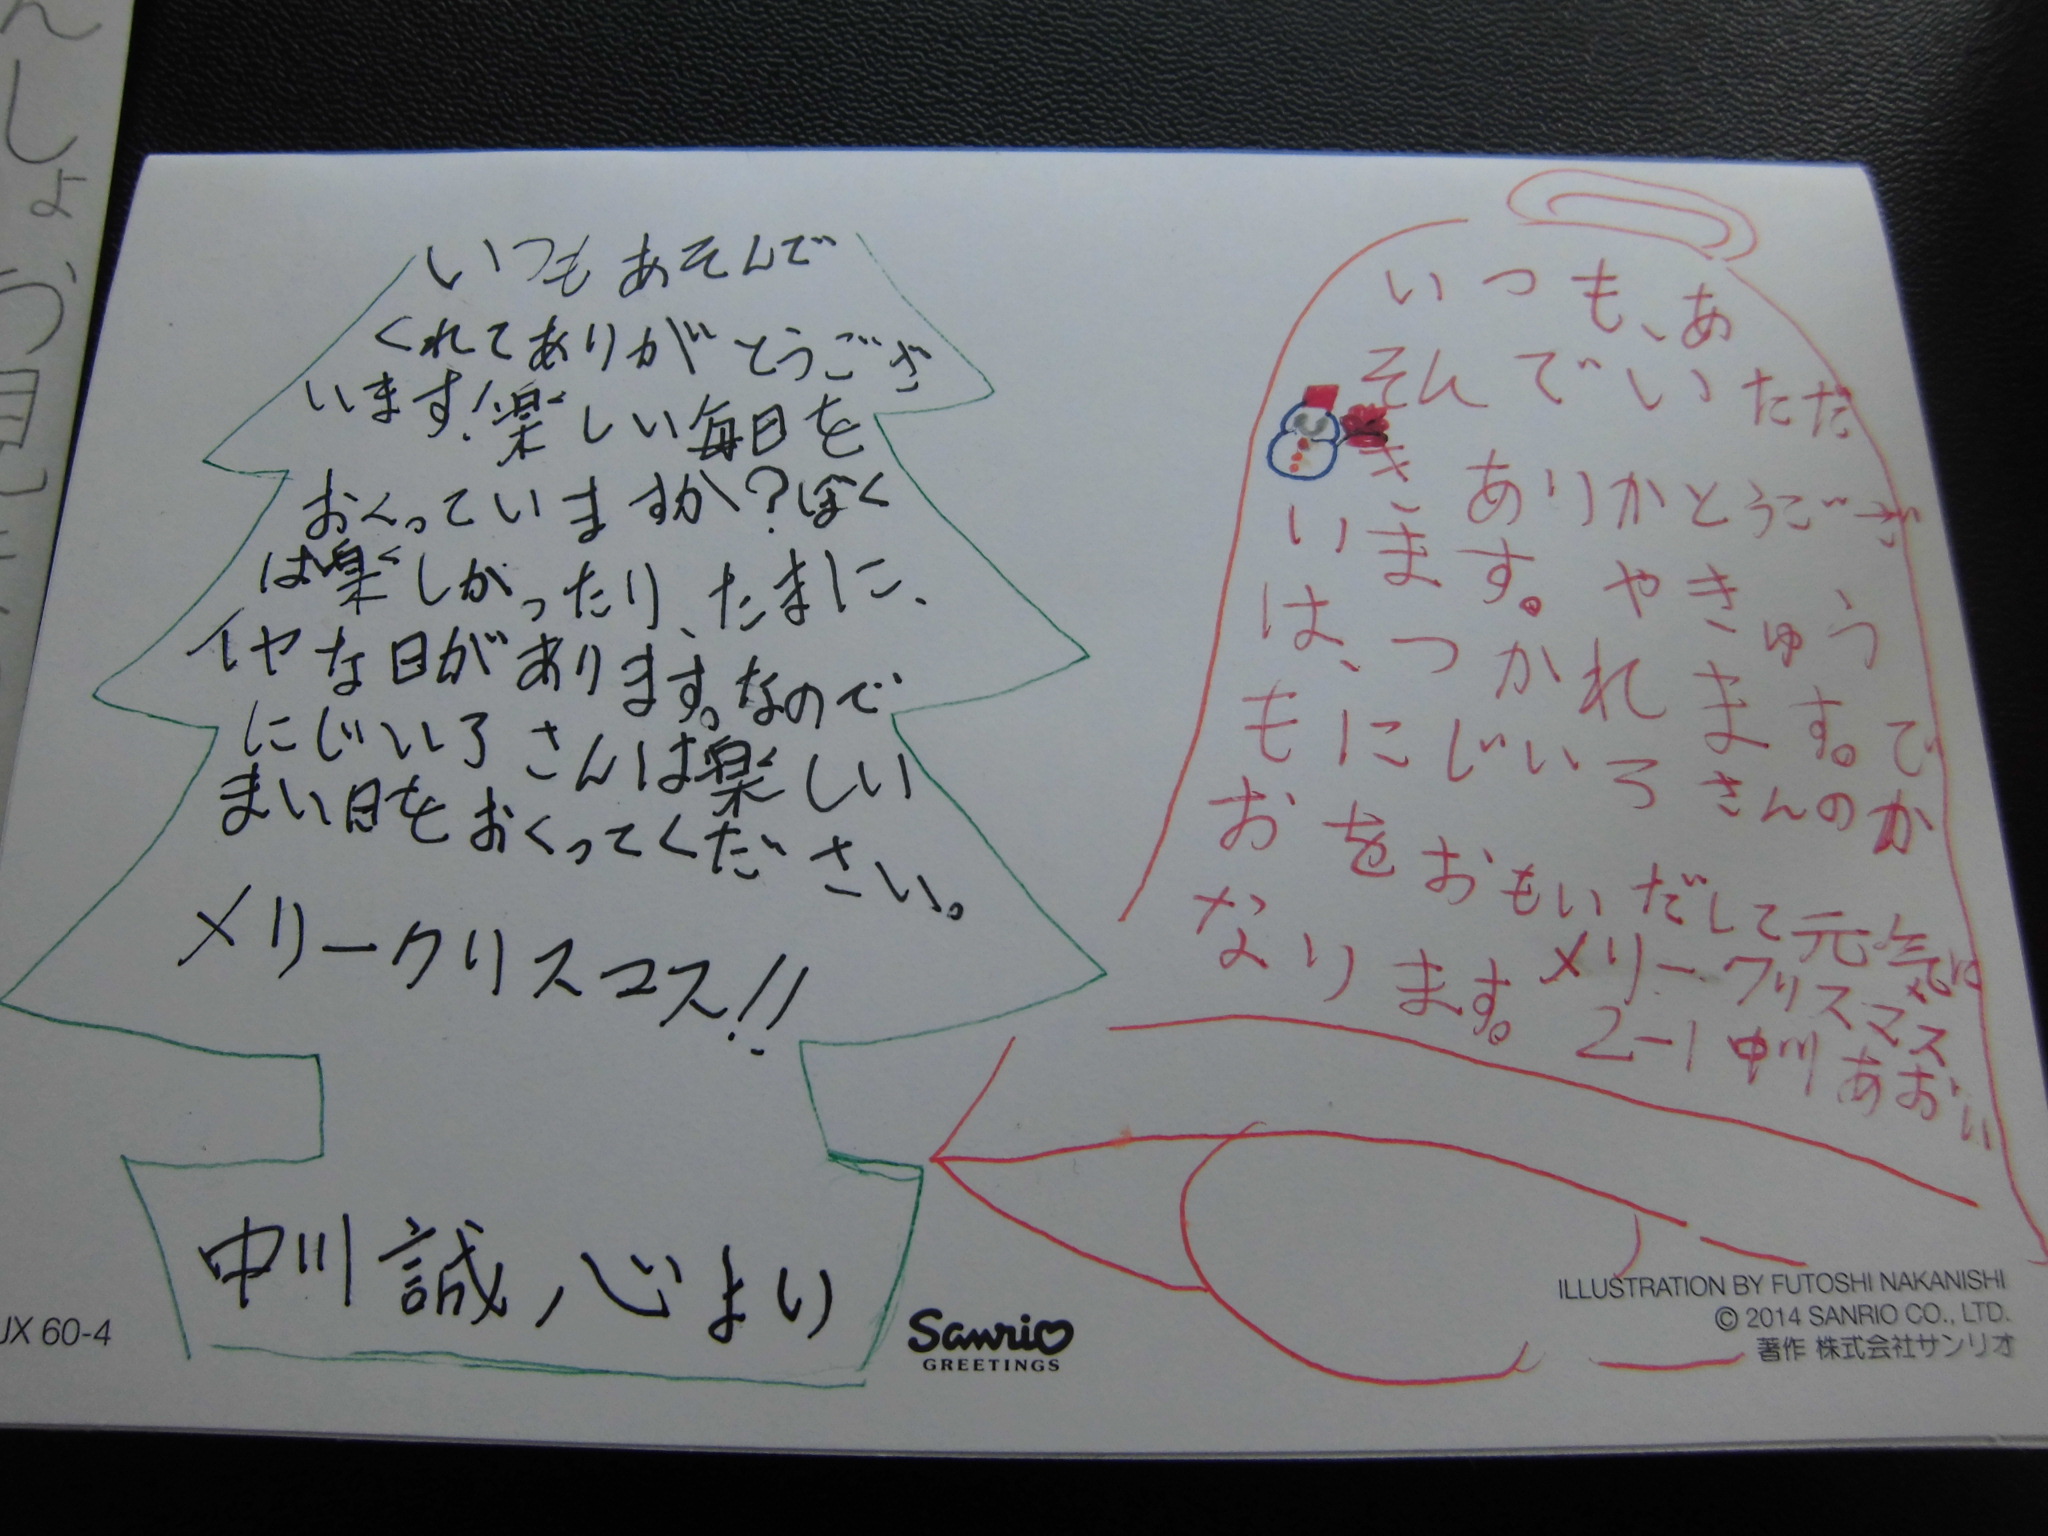 いつもあそんで
くれてありがとうござ
います!楽しい毎日を
おくっていますか?ぼく
は楽しかったり、たまに、
イヤな日があります。なので
にじいろさんは楽しい
まい日をおくってください。
メリークリスマス!!
中川誠ノ心より
いつも、あ
そんでいただ
きありかとうござ
います。やきゅう
は、つかれます。で
もにじいろさんのか
おをおもいだして元気に
なります。メリークリスマス
2-1中川あおい
JX 60-4
Sanrio
GREETINGS
ILLUSTRATION BY FUTOSHI NAKANISHI
© 2014 SANRIO CO., LTD.
著作 株式会社サンリオ
んしょう